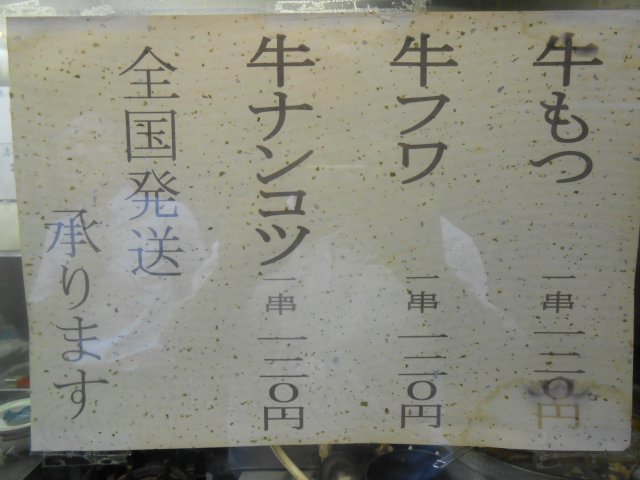 牛もつ 一串 一二〇円
牛フワ 一串 一二〇円
牛ナンコツ 一串 一二〇円
全国発送
承ります